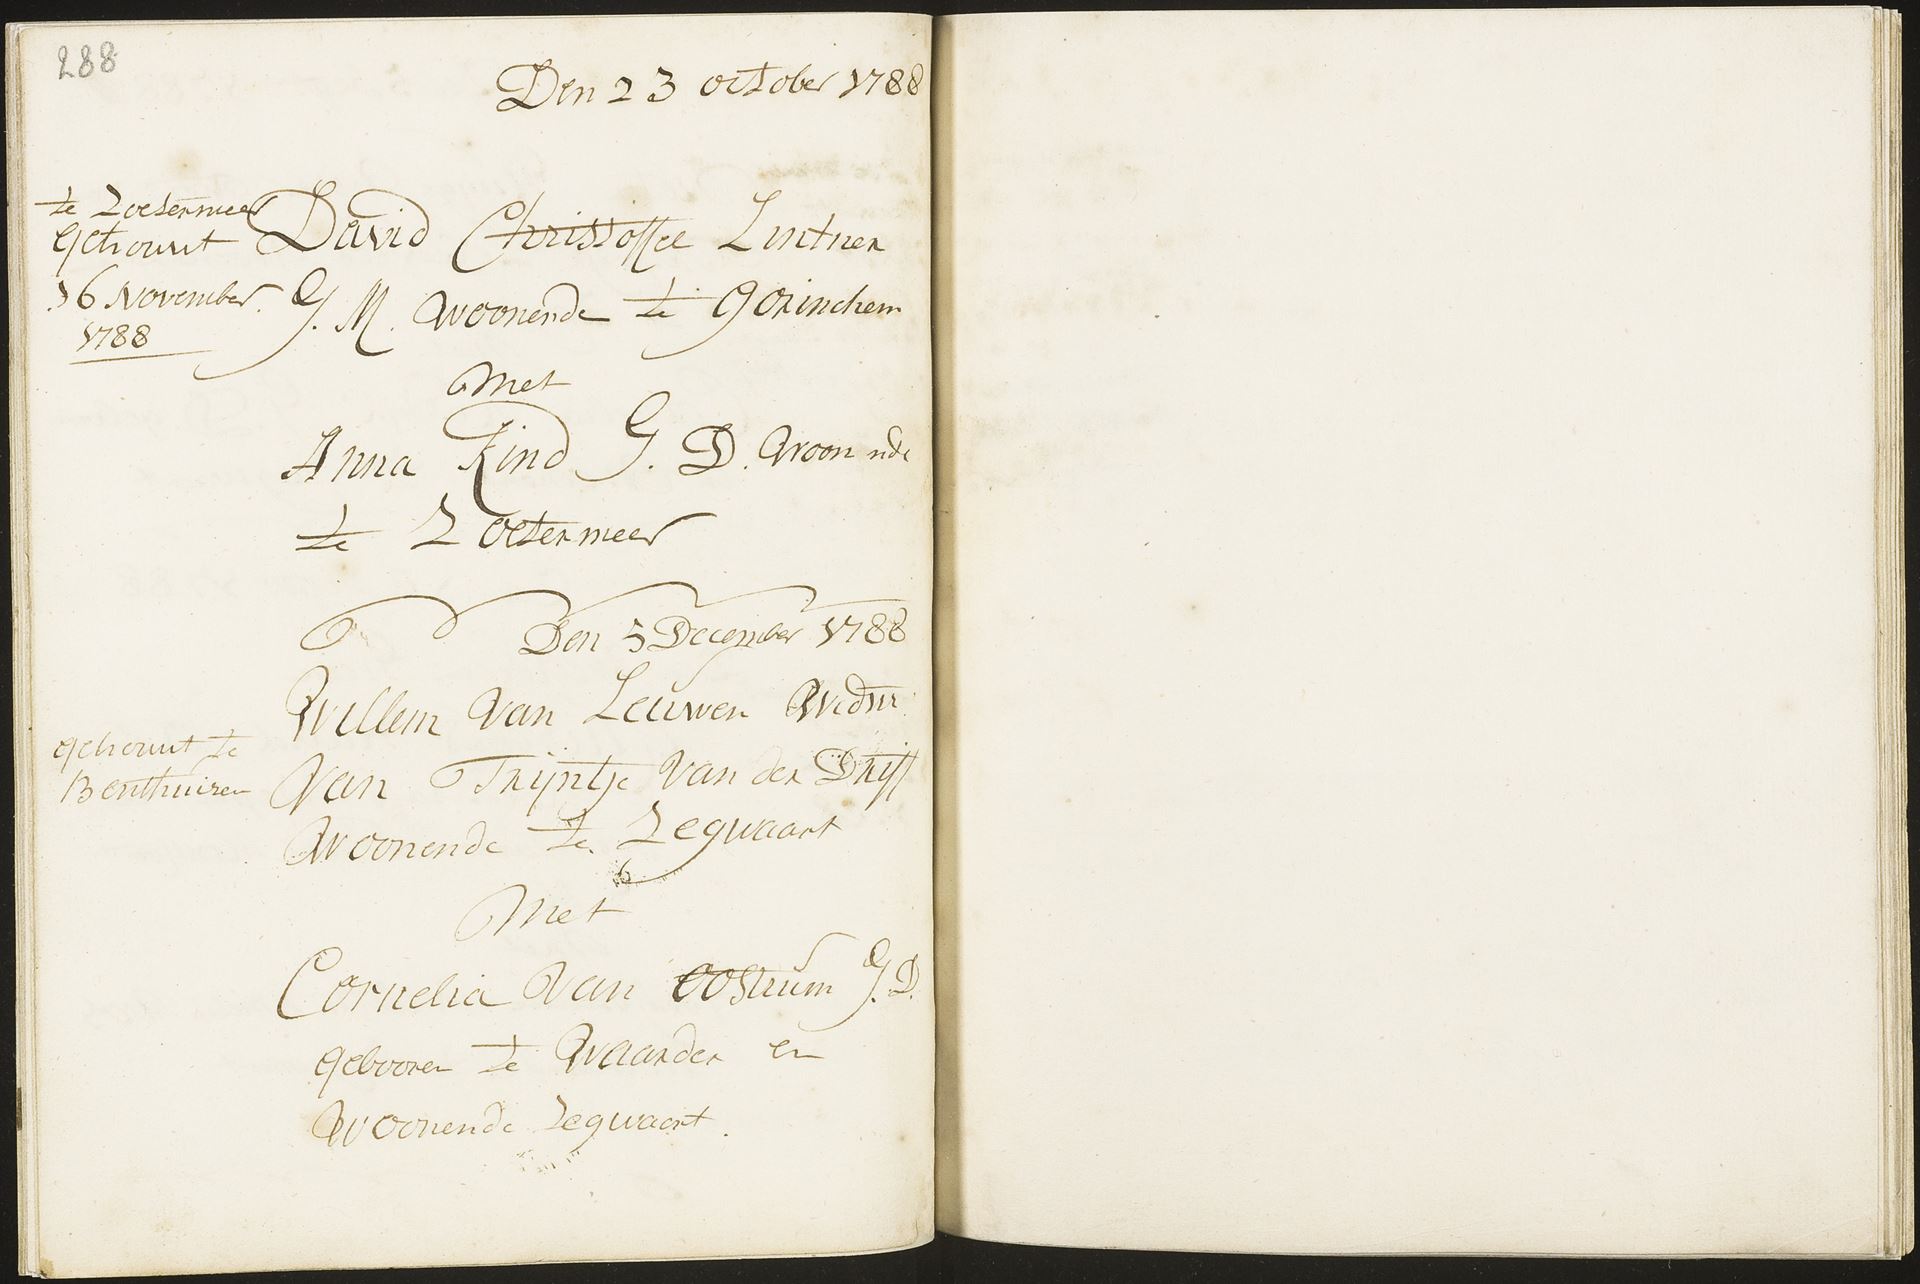 288
Den 23 october 1788
te Zoetermeer
getrouut
16 November
1788
David Christoffel Lintner
G. M. woonende te gorinchem
Met
Anna Kind G. D. Woonnde
te Zoetermeer
Den 5 December 1788
Willem van Leuwen Wednr
getrouut te
Benthuizen
Van Trijntje van der Drift
Woonende te Zegwaart
Met
Cornelia van oostrum G. D.
gebooren te Waarder en
Woonende Zegwaart.